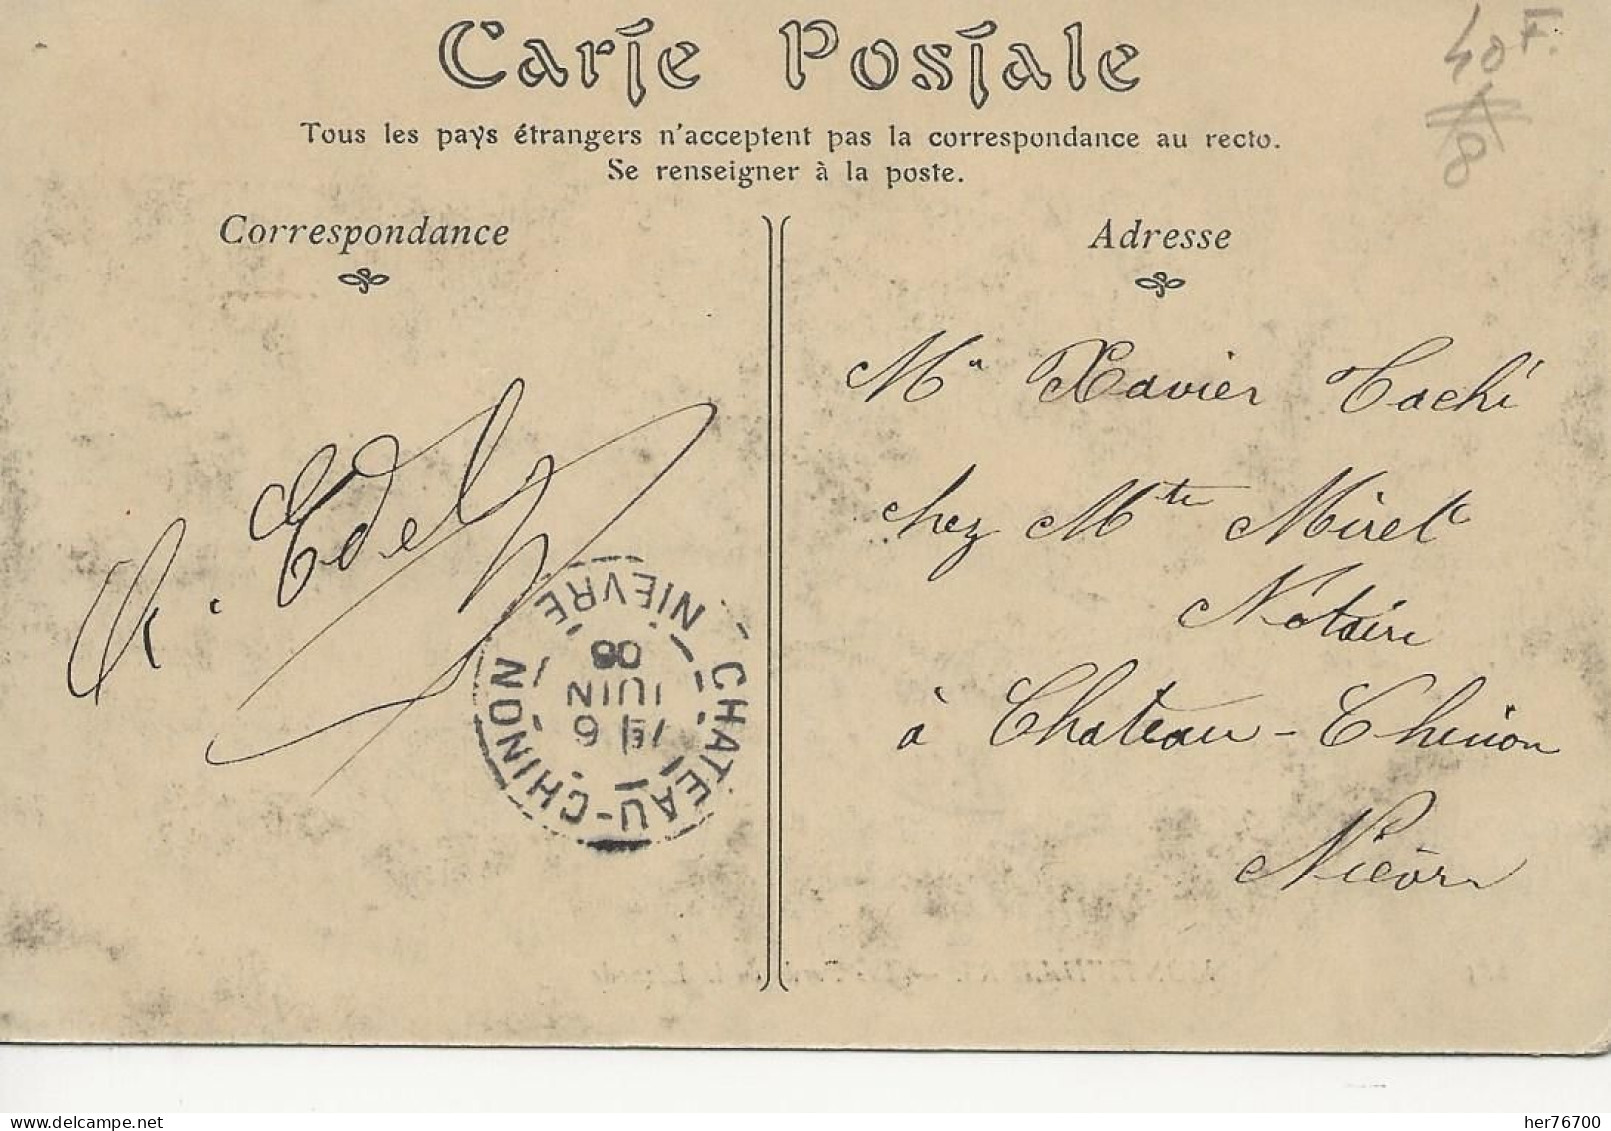 Carte Postale
40 F.
8
Tous les pays étrangers n'acceptent pas la correspondance au recto.
Se renseigner à la poste.
Correspondance
Adresse
Mr Xavier Tachi
chez Mtre Miret
Notaire
à Chateau-Chinon
Nièvre
Edel
CHATEAU-CHINON
NIEVRE
6
JUIN
08
her76700